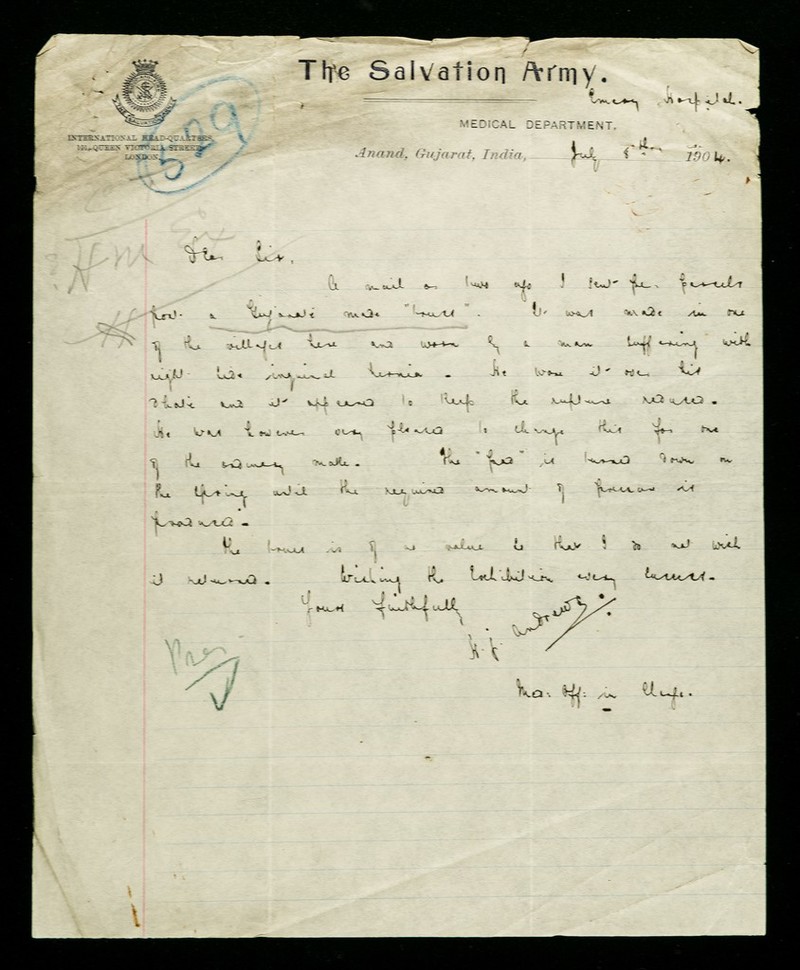 The Salvation Army.
Emery Hospital.
MEDICAL DEPARTMENT.
INTERNATIONAL HEAD-QUARTERS,
101, QUEEN VICTORIA STREET,
LONDON.
529
Anand, Gujarat, India, July 5th 1904.
HM Ex
Dear Sir,
A mail or two ago I sent per parcels
post a Gujarati made "truss". It was made in one
of the villages here and worn by a man suffering with
right side inguinal hernia. He wore it over his
dhoti and it appeared to keep the rupture reduced.
He was however very pleased to change this for one
of the ordinary make. The "pad" is turned down on
the spring until the required amount of pressure is
produced.
The truss is of no value so that I do not wish
it returned. Wishing the Exhibition every success.
Yours faithfully
H. J. Andrews.
Med: Off: in Charge.